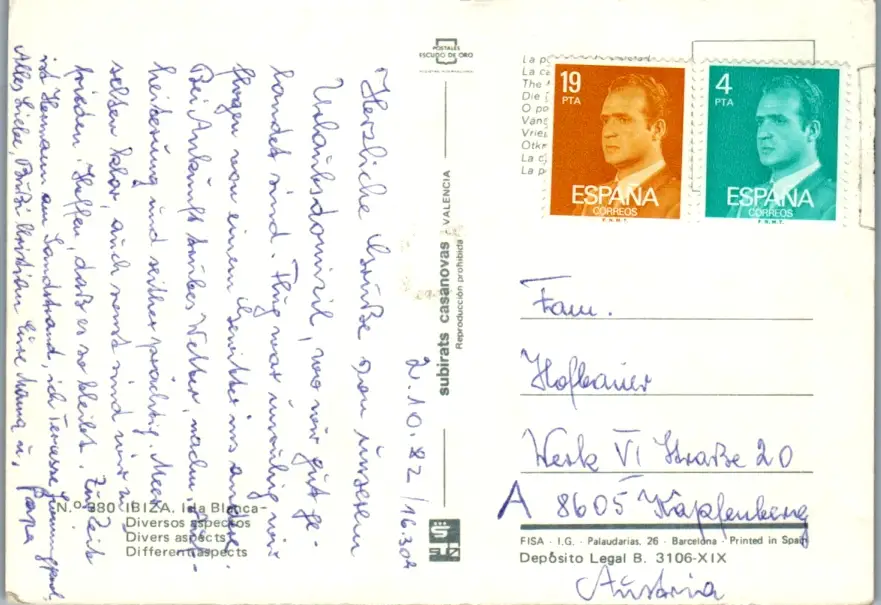 2.10.82/16.30h
Herzliche Grüße von unserem
Urlaubsdomizil, wo wir gut ge-
landet sind. Flug war unruhig wir
flogen von einem Gewitter ins andere.
Bei Ankunft trübes Wetter, nachm.
heiterung und seither prächtig. Meer
selten klar, auch sonst sind wir zu-
frieden. Hoffen, daß es so bleibt. Zur Zeit
ist Hermann am Sandstrand, ich Terrasse
Alles Liebe, Bussi Kristian Eure Mama u. Papa
N.º 380 IBIZA. Isla Blanca-
Diversos aspectos
Divers aspects
Different aspects
POSTALES
ESCUDO DE ORO
subirats casanovas - VALENCIA
Reproducción prohibida
La
La ca
The
Die
O po
Vans
Vries
Otkr
La c
La p
19
PTA
ESPAÑA
CORREOS
F.N.M.T.
4
PTA
ESPAÑA
CORREOS
F.N.M.T.
Fam.
Hofbauer
Werk VI Straße 20
A 8605 Kapfenberg
FISA - I.G. - Palaudarias, 26 - Barcelona - Printed in Spain
Depósito Legal B. 3106-XIX
Austria